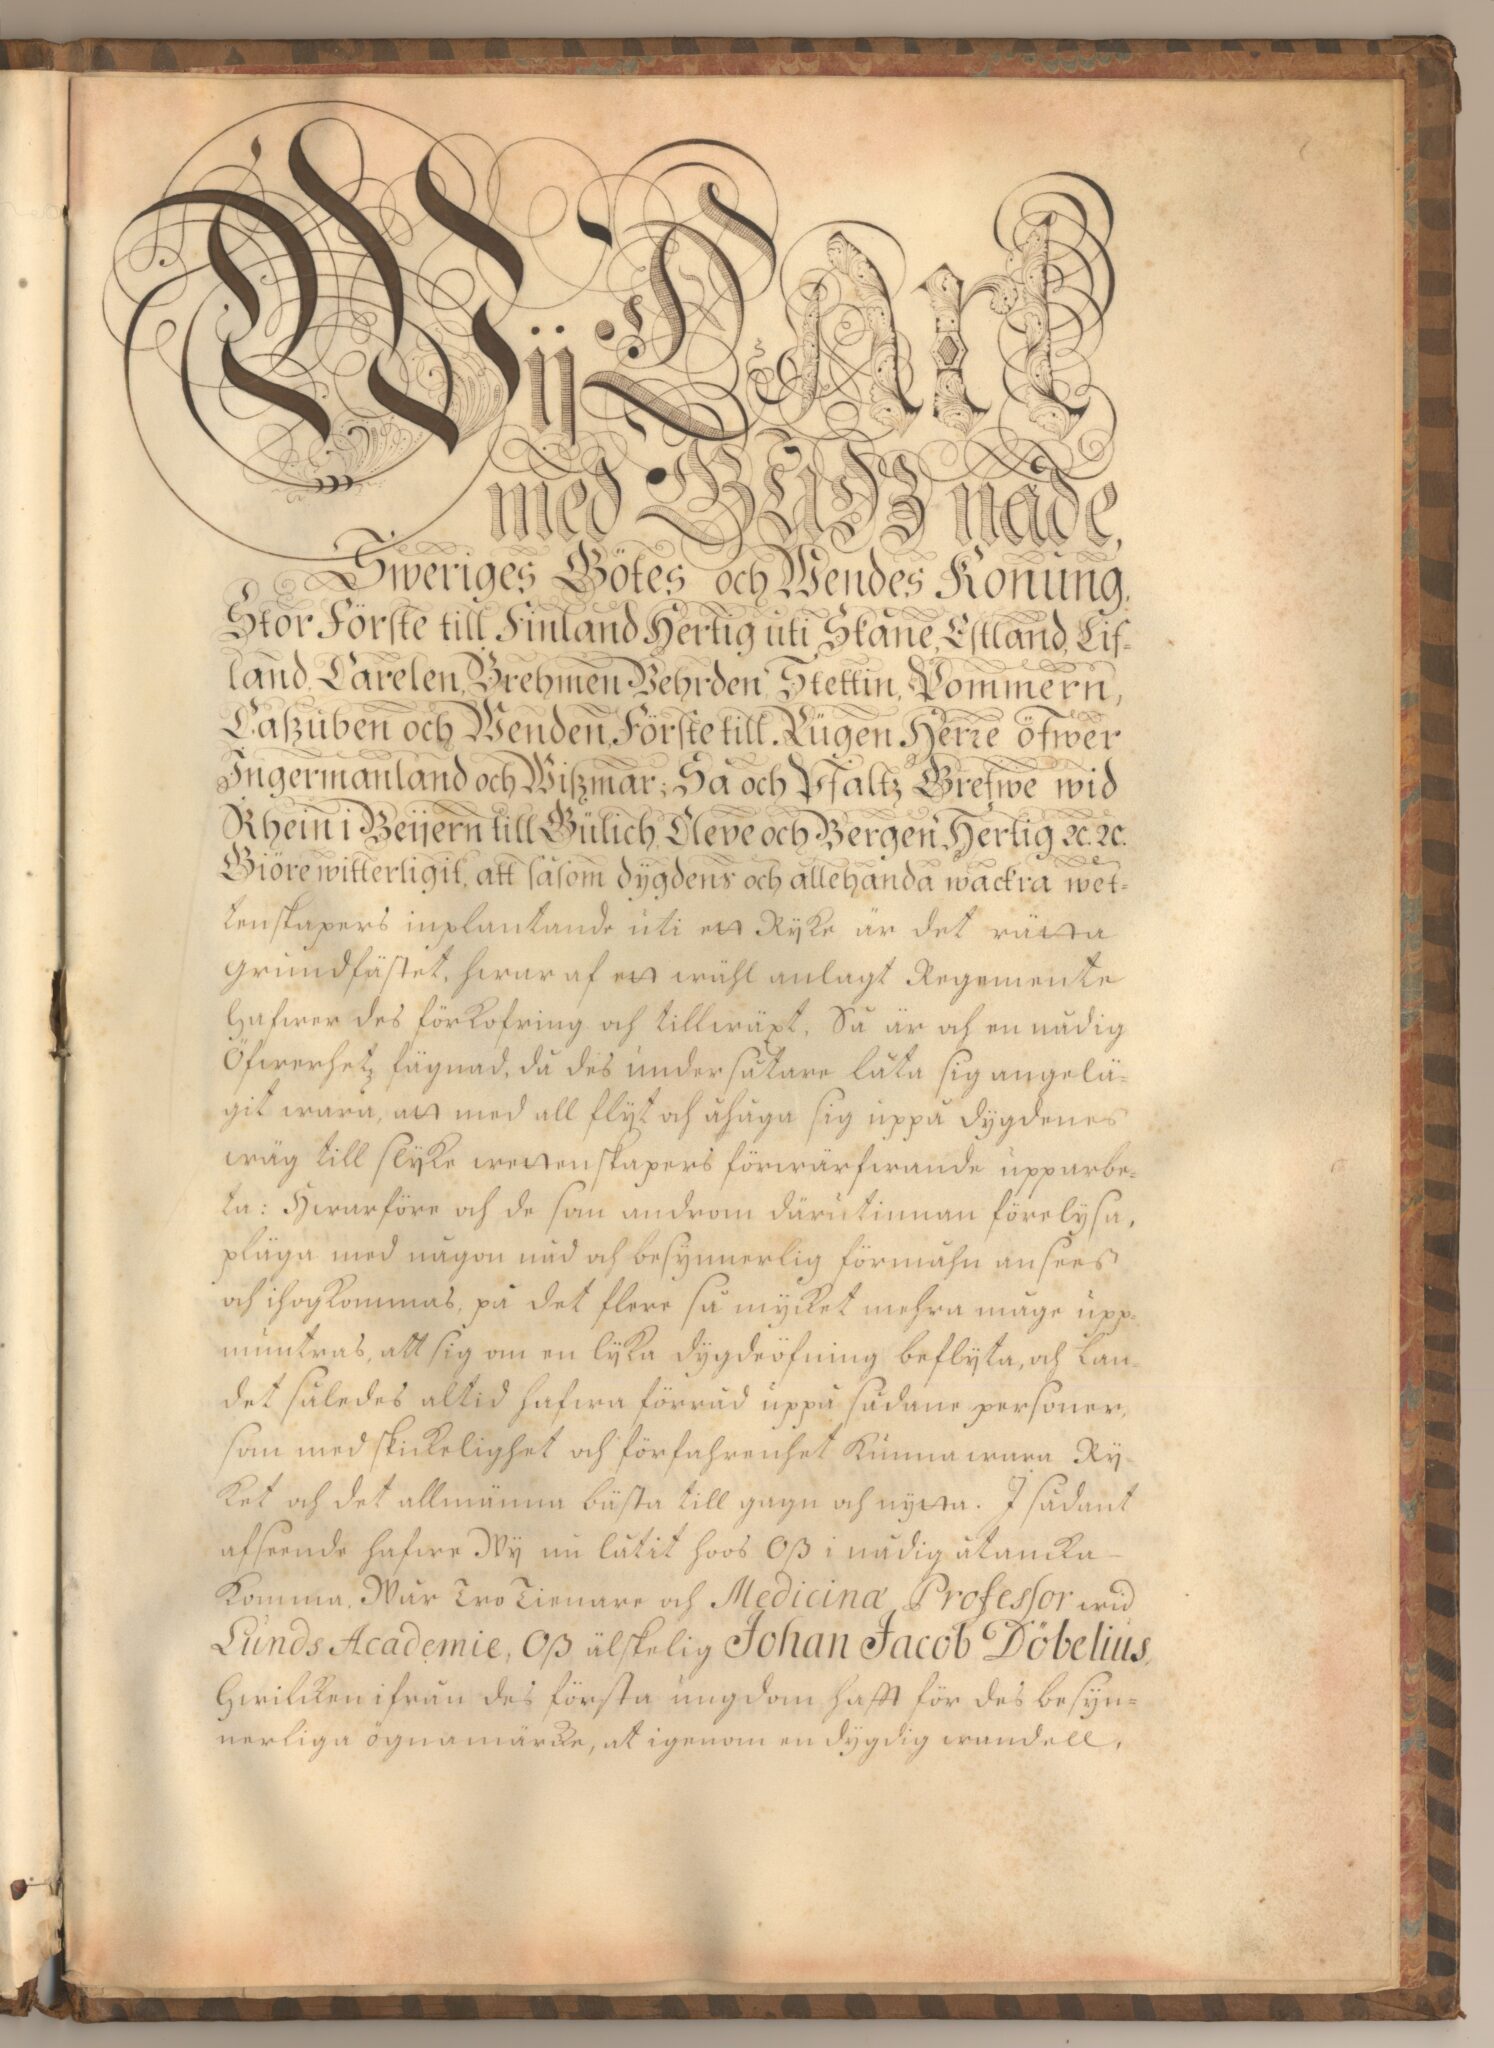 Wij Carl
med GUDZ nåde,
Sweriges Götes och Wendes Konung,
Stor Förste till Finland Hertig uti Skåne, Estland, Lif-
land, Carelen, Brehmen Vehrden, Stettin, Pommern,
Caßuben och Wenden, Förste till Rügen Herre öfwer
Ingermanland och Wißmar; Så och Pfaltz Grefwe wid
Rhein i Beijern till Gülich, Cleve och Bergen Hertig ꝛc. ꝛc.
Giöre witterligit, att såsom dygdens och allehanda wackra wet-
tenskapers inplantande uti ett Ryke är det rätta
grundfästet, hwar af ett wähl anlagt Regemente
hafwer des förkofring och tillwäxt, Så är och en nådig
Öfwerhetz fägnad, då des undersåtare låta sig angelä-
git wara, att med all flyt och åhåga sig uppå dygdenes
wäg till slyke wettenskapers förwärfwande upparbe-
ta: Hwarföre och de som androm därutinnan förelysa,
pläga med någon nåd och besynnerlig förmåhn ansees
och ihogkommas, på det flere så mycket mehra måge upp-
muntras, att sig om en lyka dygdeöfning beflyta, och Lan-
det således altid hafwa förråd uppå sådane personer,
som med skickelighet och förfahrenhet kunna wara Ry-
ket och det allmänna bästa till gagn och nytta. I sådant
afseende hafwe Wy nu låtit hoos Oß i nådig åtancka
komma, Wår Tro Tienare och Medicinæ Professor wid
Lunds Academie, Oß älskelig Johan Jacob Döbelius,
hwilcken ifrån des första ungdom hafft för des besyn-
nerliga ögnamärcke, at igenom en dygdig wandell,